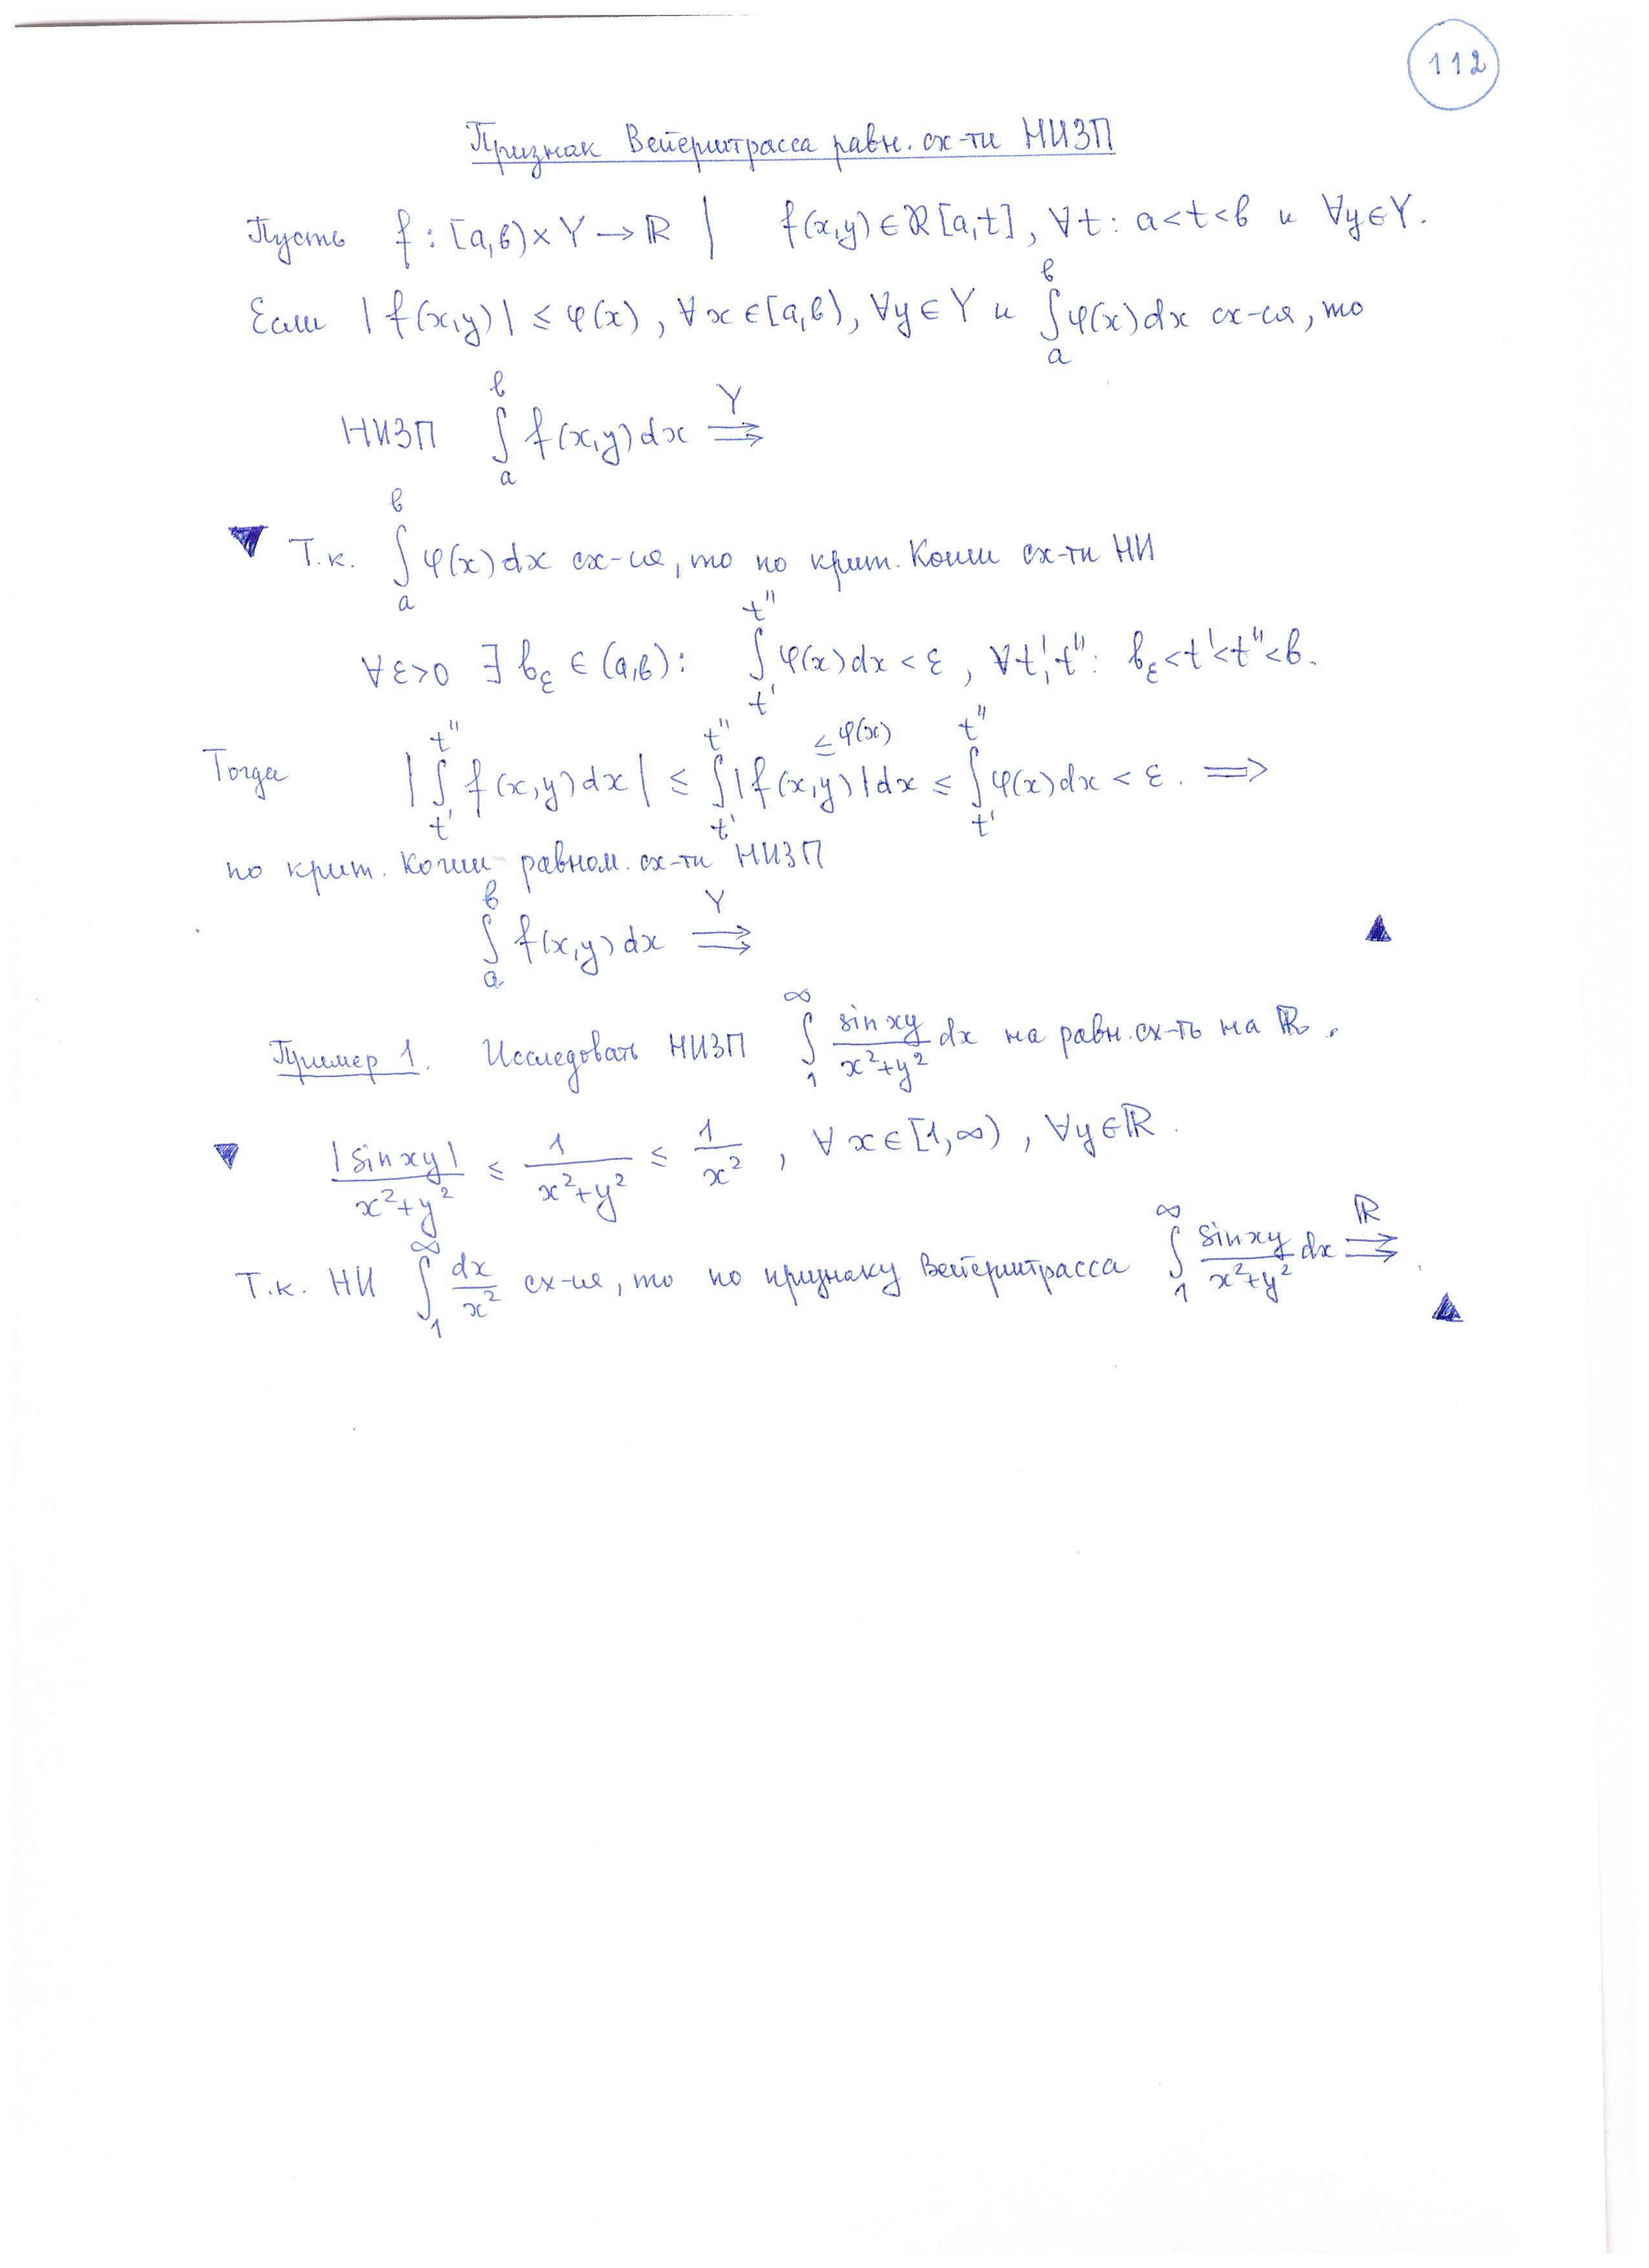 112
Признак Вейерштрасса равн. сх-ти НИЗП
Пусть f : [a,b)×Y→ℝ | f(x,y)∈ℛ[a,t], ∀t: a<t<b и ∀y∈Y.
Если |f(x,y)| ≤ φ(x), ∀x∈[a,b), ∀y∈Y и ∫_a^b φ(x)dx сх-ся, то
НИЗП ∫_a^b f(x,y)dx ⇉^Y
▼ Т.к. ∫_a^b φ(x)dx сх-ся, то по крит. Коши сх-ти НИ
∀ε>0 ∃ b_ε ∈ (a,b): ∫_{t'}^{t''} φ(x)dx < ε, ∀t',t'': b_ε<t'<t''<b.
Тогда |∫_{t'}^{t''} f(x,y)dx| ≤ ∫_{t'}^{t''} |f(x,y)|dx ≤ ∫_{t'}^{t''} φ(x)dx < ε. ⟹
≤ φ(x)
по крит. Коши равном. сх-ти НИЗП
∫_a^b f(x,y)dx ⇉^Y ▲
Пример 1. Исследовать НИЗП ∫_1^∞ \frac{sin xy}{x²+y²} dx на равн. сх-ть на ℝ.
▼ \frac{|sin xy|}{x²+y²} ≤ \frac{1}{x²+y²} ≤ \frac{1}{x²}, ∀ x∈[1,∞), ∀y∈ℝ.
Т.к. НИ ∫_1^∞ \frac{dx}{x²} сх-ся, то по признаку Вейерштрасса ∫_1^∞ \frac{sin xy}{x²+y²} dx ⇉^ℝ. ▲